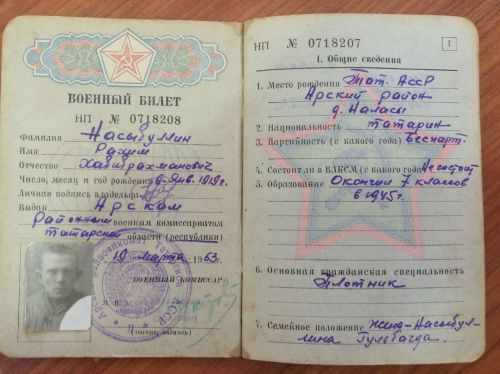 ВОЕННЫЙ БИЛЕТ
НП № 0718208
Фамилия Насыбуллин
Имя Рахим
Отчество Хабибрахманович
Число, месяц и год рождения 6 янв. 1919 г.
Личная подпись владельца
Выдан Арским
Районным военным комиссариатом
татарской области (республики)
19 марта 1963.
ВОЕННЫЙ КОМИССАР
М. П.
НП № 0718207 1
I. Общие сведения
1. Место рождения Тат. АССР
Арский район
д. Наласы
2. Национальность татарин
3. Партийность (с какого года) Беспарт.
4. Состоял ли в ВЛКСМ (с какого года) Не состоял
5. Образование Окончил 7 классов
в 1945 г.
6. Основная гражданская специальность
Плотник
7. Семейное положение жена-Насыбул-
лина Гульбагда.